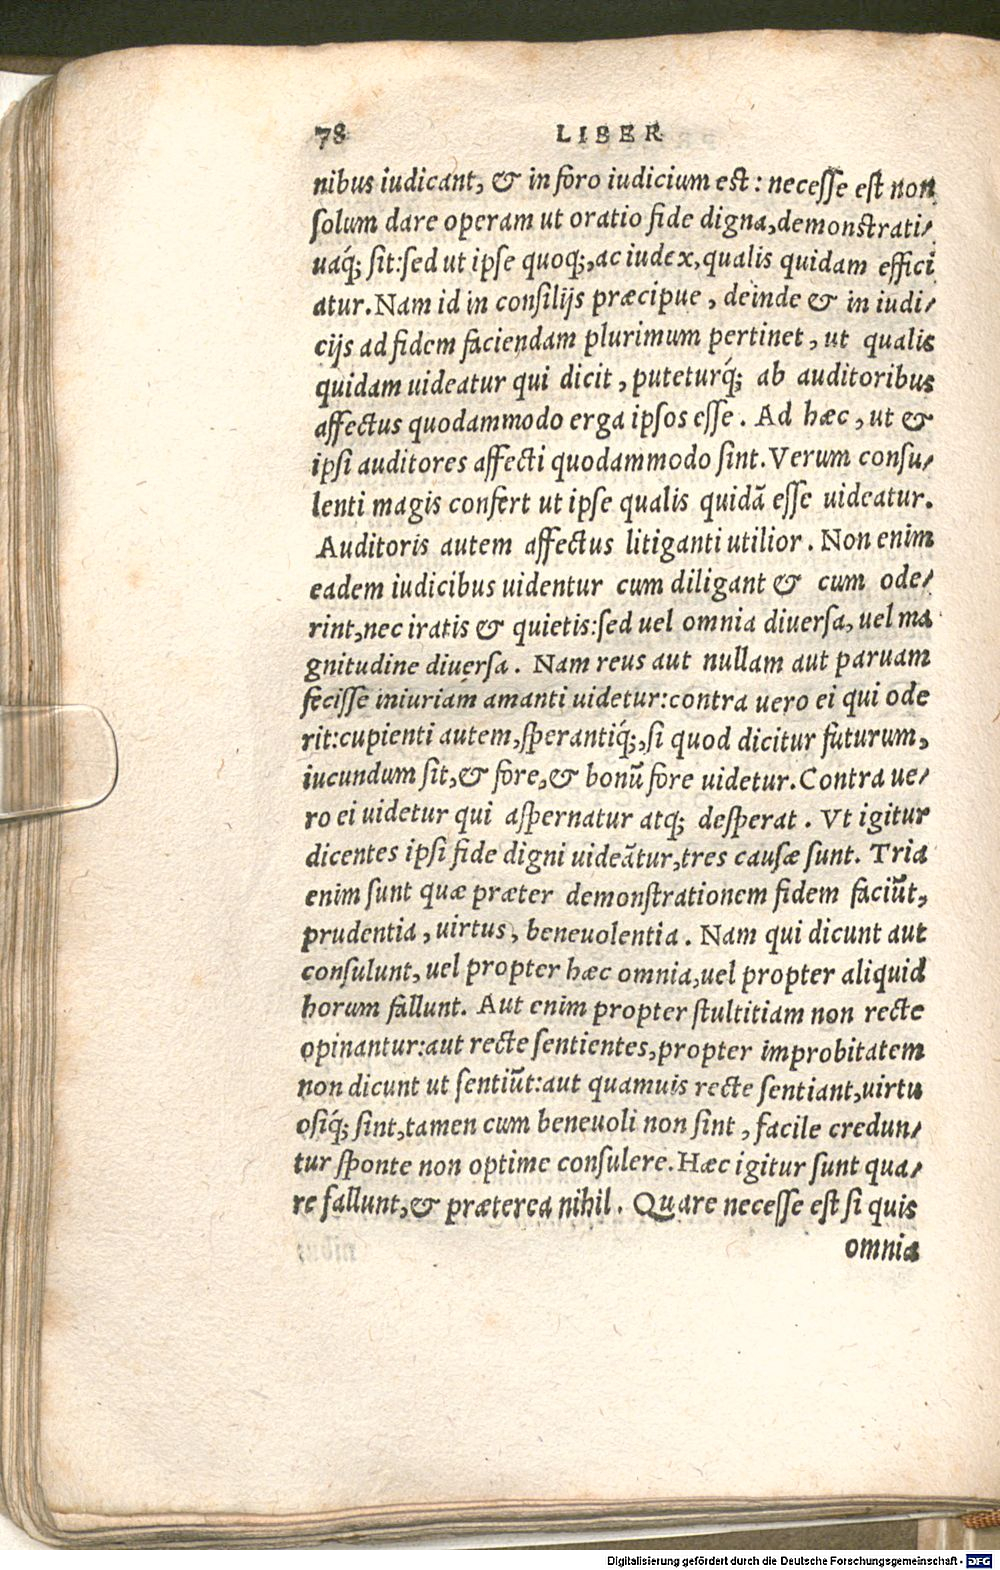 78 LIBER
nibus iudicant, & in foro iudicium est: necesse est non
solum dare operam ut oratio fide digna, demonstrati/
uaq́; sit: sed ut ipse quoq;, ac iudex, qualis quidam effici
atur. Nam id in consilijs præcipue, deinde & in iudi/
cijs ad fidem faciendam plurimum pertinet, ut qualis
quidam uideatur qui dicit, puteturq́; ab auditoribus
affectus quodammodo erga ipsos esse. Ad hæc, ut &
ipsi auditores affecti quodammodo sint. Verum consu/
lenti magis confert ut ipse qualis quidã esse uideatur.
Auditoris autem affectus litiganti utilior. Non enim
eadem iudicibus uidentur cum diligant & cum ode/
rint, nec iratis & quietis: sed uel omnia diuersa, uel ma
gnitudine diuersa. Nam reus aut nullam aut paruam
fecisse iniuriam amanti uidetur: contra uero ei qui ode
rit: cupienti autem, sperantiq́;, si quod dicitur futurum,
iucundum sit, & fore, & bonũ fore uidetur. Contra ue/
ro ei uidetur qui aspernatur atq; desperat. Vt igitur
dicentes ipsi fide digni uideãtur, tres causæ sunt. Tria
enim sunt quæ præter demonstrationem fidem faciũt,
prudentia, uirtus, beneuolentia. Nam qui dicunt aut
consulunt, uel propter hæc omnia, uel propter aliquid
horum fallunt. Aut enim propter stultitiam non recte
opinantur: aut recte sentientes, propter improbitatem
non dicunt ut sentiũt: aut quamuis recte sentiant, uirtu
osiq́; sint, tamen cum beneuoli non sint, facile credun/
tur sponte non optime consulere. Hæc igitur sunt qua/
re fallunt, & præterea nihil. Quare necesse est si quis
omnia
Digitalisierung gefördert durch die Deutsche Forschungsgemeinschaft - DFG